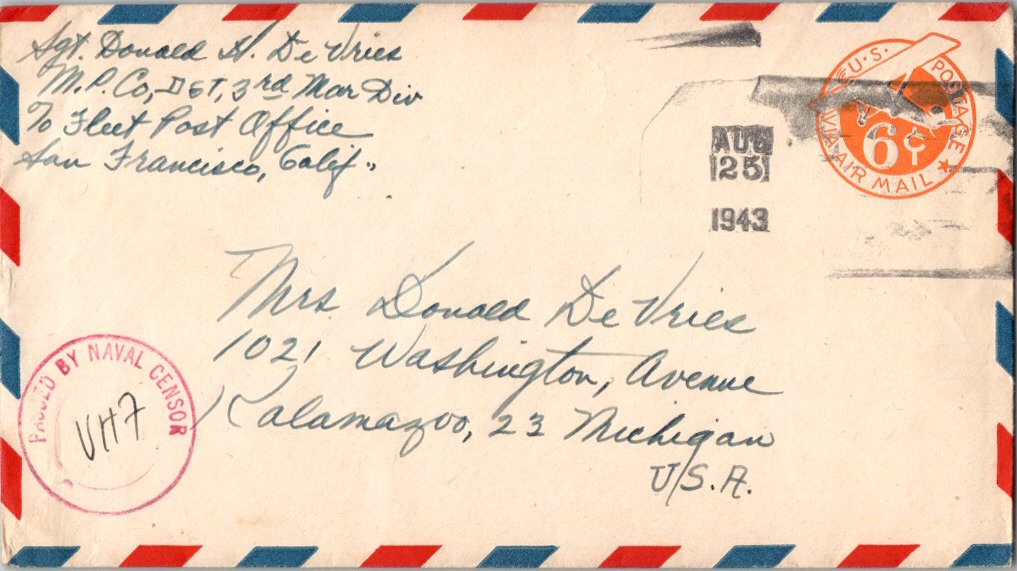 Sgt. Donald H. De Vries
M.P. Co., D 6T, 3rd Mar Div
℅ Fleet Post Office
San Francisco, Calif.,
U.S. POSTAGE
VIA AIR MAIL
6¢
AUG
25
1943
Mrs. Donald De Vries
1021 Washington, Avenue
Kalamazoo, 23 Michigan
U.S.A.
PASSED BY NAVAL CENSOR